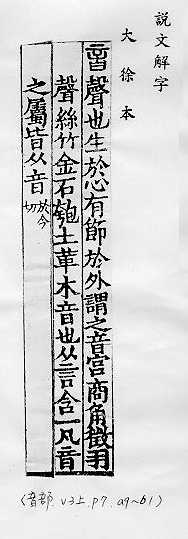 說文解字
大徐本
音聲也生於心有節於外謂之音宮商角徵羽
聲絲竹金石匏土革木音也从言含一凡音
之屬皆从音 於今切
(音部. v3上. p7. a9~b1)